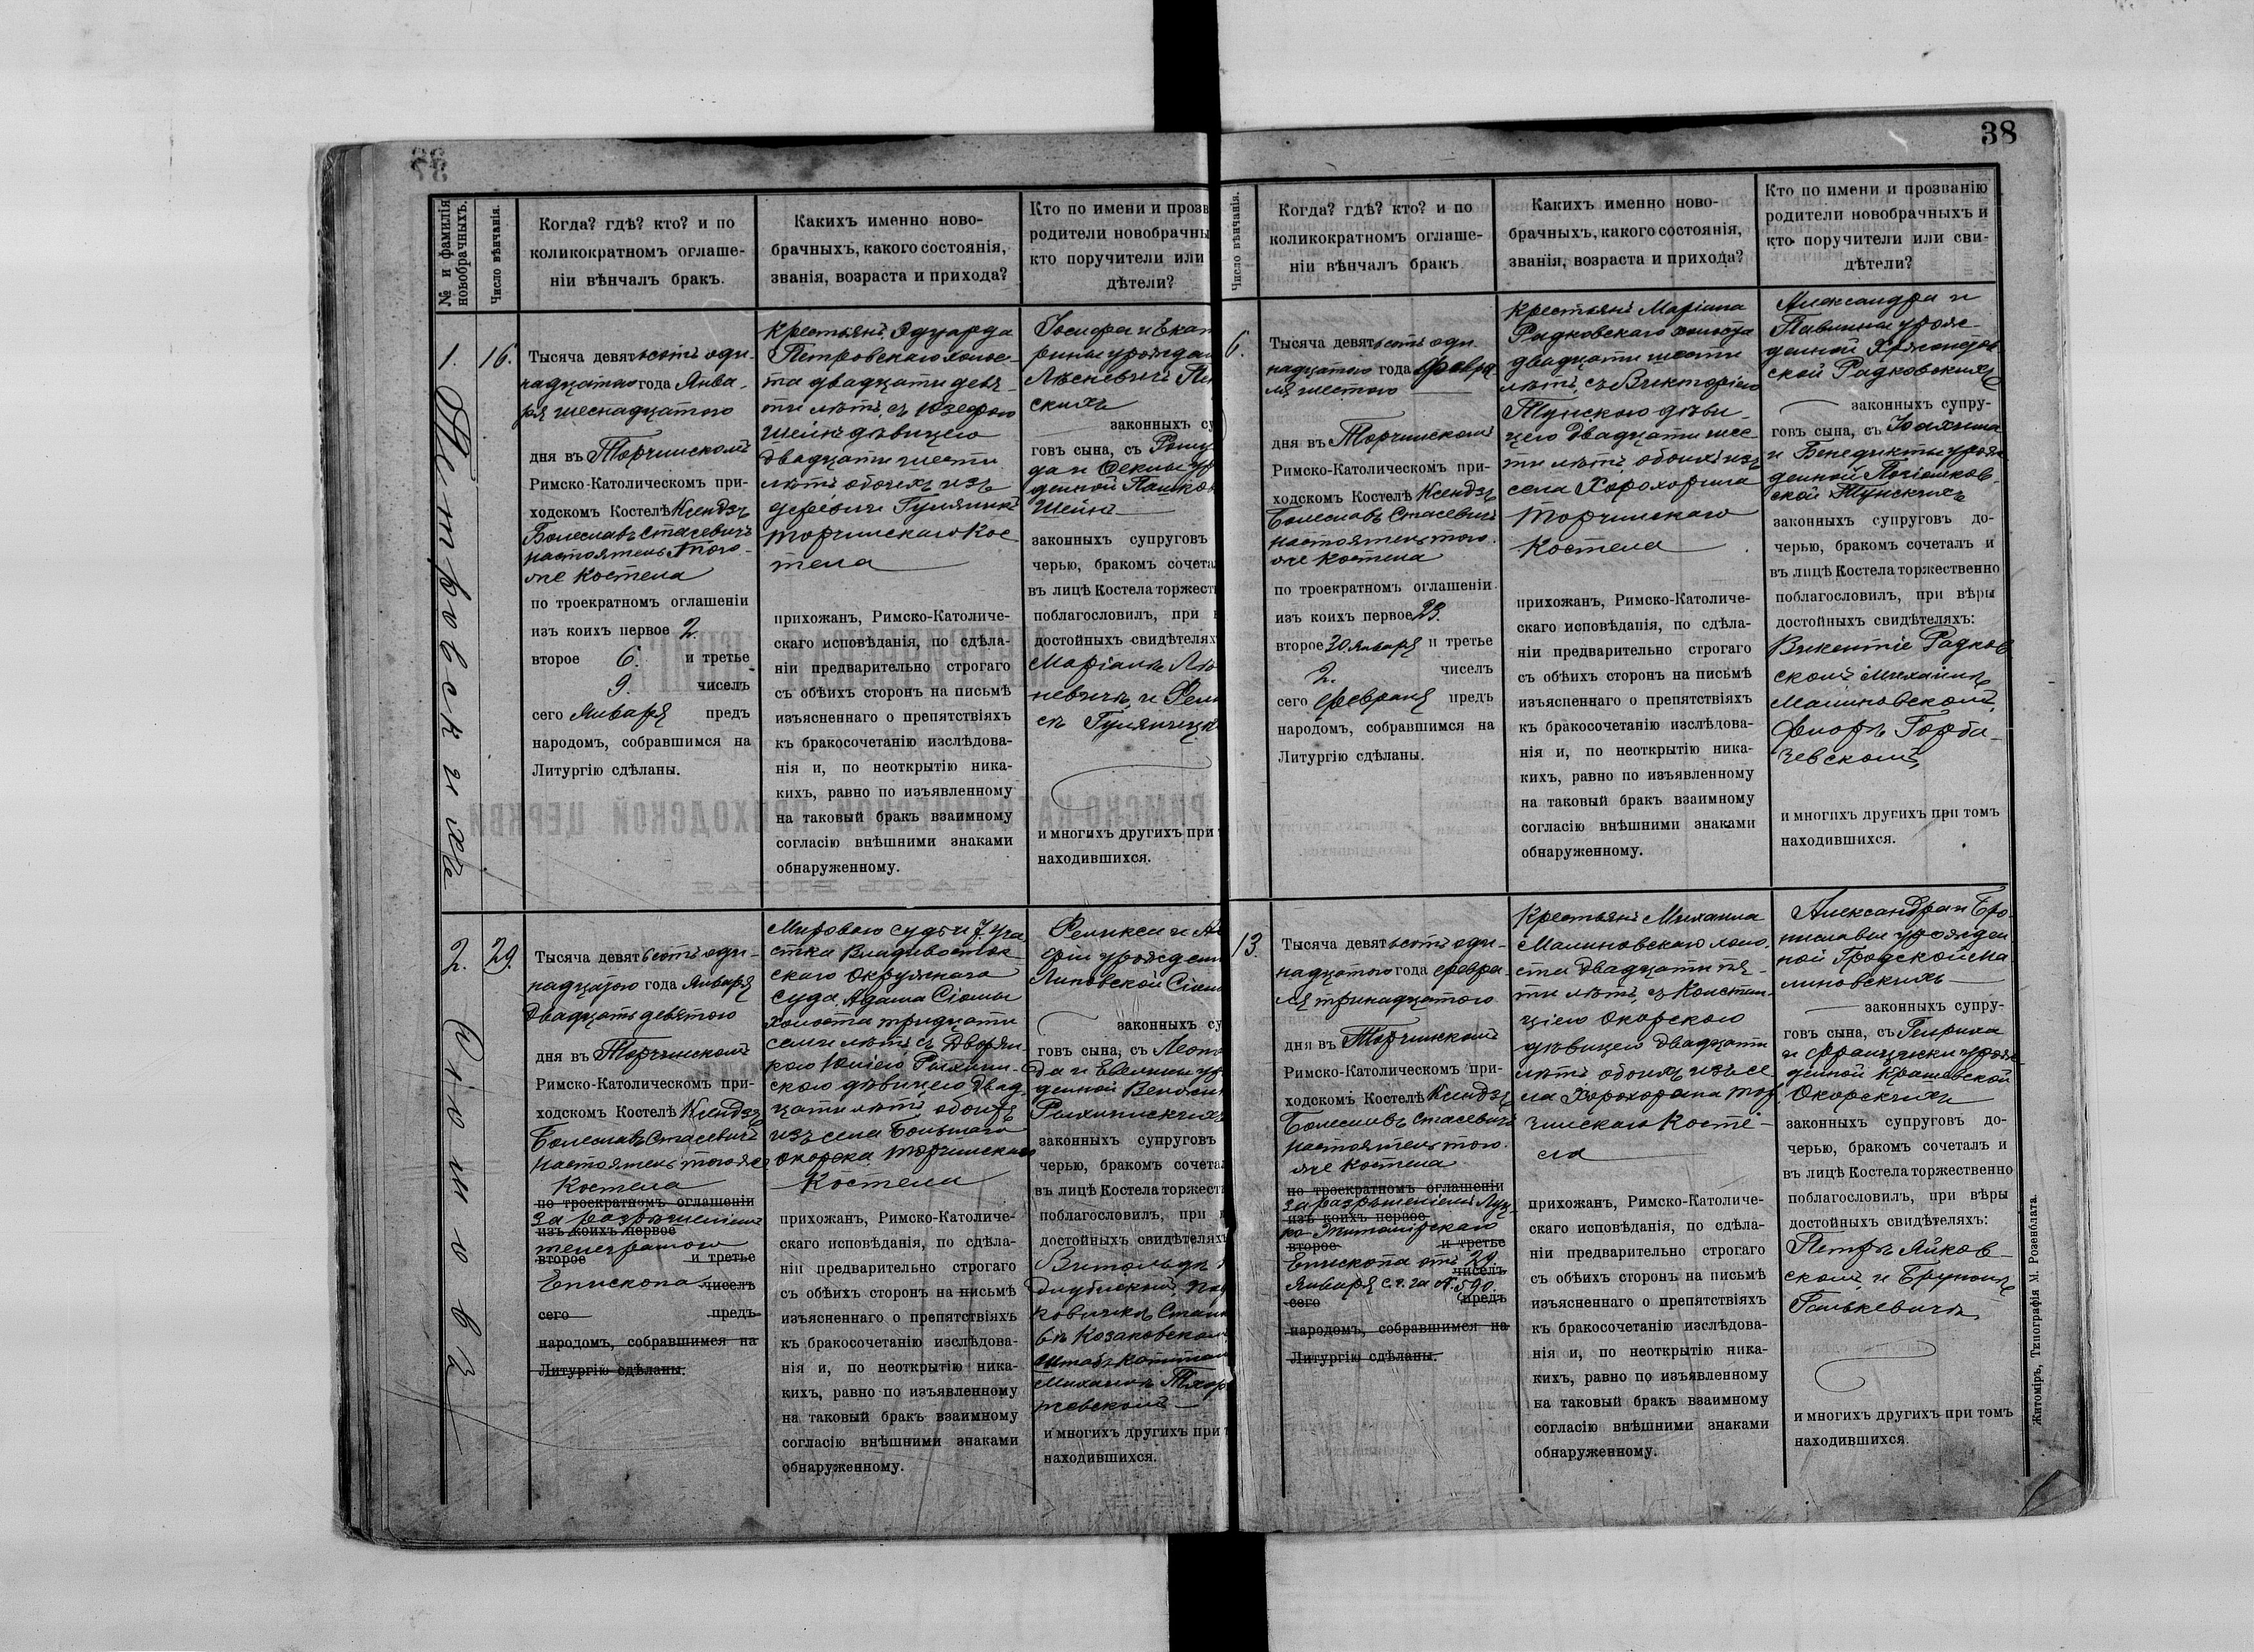 38
№ и фамилія
новобрачныхъ.
Число вѣнчанія.
Когда? гдѣ? кто? и по
коликократномъ оглаше-
ніи вѣнчалъ бракъ.
Какихъ именно ново-
брачныхъ, какого состоянія,
званія, возраста и прихода?
Кто по имени и прозв
родители новобрачны
кто поручители или
дѣтели?
1.
Петровскихъ
16.
Тысяча девятьсотъ оди-
надцатаго года Янва-
ря шеснадцатого
дня въ Торчинскомъ
Римско-Католическомъ при-
ходскомъ Костелѣ Ксендзъ
Болеславъ Стасевичъ
настоятель того-
же Костела
по троекратномъ оглашеніи
изъ коихъ первое 2.
второе 6. и третье
9. чиселъ
сего Января предъ
народомъ, собравшимся на
Литургію сдѣланы.
Крестьянъ Эдуарда
Петровскаго холос-
та двадцати девя-
ти лѣтъ, съ Юзефою
Шейнъ дѣвицею
двадцати шести
лѣтъ обоихъ изъ
деревни Гуляники
Торчинскаго Кос-
тела
прихожанъ, Римско-Католиче-
скаго исповѣданія, по сдѣла-
ніи предварительно строгаго
съ обѣихъ сторонъ на письмѣ
изъясненнаго о препятствіяхъ
къ бракосочетанію изслѣдова-
нія и, по неоткрытію ника-
кихъ, равно по изъявленному
на таковый бракъ взаимному
согласію внѣшними знаками
обнаруженному.
Іосифа и Екат
рины урожден
Лѣсневичъ Пе
скихъ
законныхъ су
говъ сына, съ
да и Феклы ур
денной Пашков
Шейнъ
законныхъ супруговъ
черью, бракомъ сочета
въ лицѣ Костела торжест
поблагословилъ, при
достойныхъ свидѣтелях
Маріанъ Лѣ
невичъ, и Фели
съ Гуляницк
и многихъ другихъ при
находившихся.
2.
Сіомовъ
29.
Тысяча девятьсотъ оди-
надцатого года Января
двадцать девятого
дня въ Торчинскомъ
Римско-Католическомъ при-
ходскомъ Костелѣ Ксендзъ
Болеславъ Стасевичъ
настоятель тогоже
Костела
по троекратномъ оглашеніи
за разрѣшеніемъ
изъ коихъ первое
телеграмою
второе и третье
Епископа чиселъ
сего предъ
народомъ, собравшимся на
Литургію сдѣланы.
Мирового судьи 7. уча
стка Владивосток-
скаго Окружнаго
суда Адама Сіомы
холоста тридцати
семи лѣтъ съ Дворян-
кою Юліею
скою дѣвицею двад-
цати лѣтъ обоихъ
изъ села Большаго
Окорска Торчинскаго
Костела
прихожанъ, Римско-Католиче-
скаго исповѣданія, по сдѣла-
ніи предварительно строгаго
съ обѣихъ сторонъ на письмѣ
изъясненнаго о препятствіяхъ
къ бракосочетанію изслѣдова-
нія и, по неоткрытію ника-
кихъ, равно по изъявленному
на таковый бракъ взаимному
согласію внѣшними знаками
обнаруженному.
Феликса и
фіи урожденн
Липовской Сіом
законныхъ су
говъ сына, съ Леоп
да и Евелины ур
денной
законныхъ супруговъ
черью, бракомъ сочета
въ лицѣ Костела торжест
поблагословилъ, при
достойныхъ свидѣтеляхъ
Витольдъ
ковичъ Стани
въ Козаковском
Штабъ капитан
Михаилъ Тхор
жевскомъ
и многихъ другихъ при
находившихся.
Число вѣнчанія.
Когда? гдѣ? кто? и по
коликократномъ оглаше-
ніи вѣнчалъ бракъ.
Какихъ именно ново-
брачныхъ, какого состоянія,
званія, возраста и прихода?
Кто по имени и прозванію
родители новобрачныхъ и
кто поручители или сви-
дѣтели?
6.
Тысяча девятьсотъ оди-
надцатого года Февра-
ля шестого
дня въ Торчинскомъ
Римско-Католическомъ при-
ходскомъ Костелѣ Ксендзъ
Болеславъ Стасевичъ
настоятель того-
же Костела
по троекратномъ оглашеніи
изъ коихъ первое 23.
второе 30. Января и третье
2. чиселъ
сего Февраля предъ
народомъ, собравшимся на
Литургію сдѣланы.
Крестьянъ Маріана
Радковскаго холоста
двадцати шести
лѣтъ, съ Викторіею
Тунскою дѣви-
цею двадцати шес-
ти лѣтъ обоихъ изъ
села Хорохорина
Торчинскаго
Костела
прихожанъ, Римско-Католиче-
скаго исповѣданія, по сдѣла-
ніи предварительно строгаго
съ обѣихъ сторонъ на письмѣ
изъясненнаго о препятствіяхъ
къ бракосочетанію изслѣдова-
нія и, по неоткрытію ника-
кихъ, равно по изъявленному
на таковый бракъ взаимному
согласію внѣшними знаками
обнаруженному.
Александра и
Павлины урож-
денной
ской Радковскихъ
законныхъ супру-
говъ сына, съ Іоахима
и Бенедикты урож
денной
ской Тунскихъ
законныхъ супруговъ до-
черью, бракомъ сочеталъ и
въ лицѣ Костела торжественно
поблагословилъ, при вѣры
достойныхъ свидѣтеляхъ:
Викентіе Радков
скомъ Михаилъ
Малиновскомъ,
Флоръ Горба-
чевскомъ,
и многихъ другихъ при томъ
находившихся.
13.
Тысяча девятьсотъ оди-
надцатого года Февра-
ля тринадцатого
дня въ Торчинскомъ
Римско-Католическомъ при-
ходскомъ Костелѣ Ксендзъ
Болеславъ Стасевичъ
настоятель того-
же Костела
по троекратномъ оглашеніи
за разрѣшеніемъ Луц-
изъ коихъ первое
ко-Житомірскаго
второе и третье
Епископа отъ 29.
чиселъ
Января с.г. за № 590.
сего предъ
народомъ, собравшимся на
Литургію сдѣланы.
Крестьянъ Михаила
Малиновскаго холо-
ста двадцати пя-
ти лѣтъ, съ Констан-
ціею Окорскою
дѣвицею двадцати
лѣтъ обоихъ изъ се
ла Хорохорина Тор-
чинскаго Косте-
ла
прихожанъ, Римско-Католиче-
скаго исповѣданія, по сдѣла-
ніи предварительно строгаго
съ обѣихъ сторонъ на письмѣ
изъясненнаго о препятствіяхъ
къ бракосочетанію изслѣдова-
нія и, по неоткрытію ника-
кихъ, равно по изъявленному
на таковый бракъ взаимному
согласію внѣшними знаками
обнаруженному.
Александра и Бро-
ниславы урожден
ной Гродской Ма
линовскихъ
законныхъ супру-
говъ сына, съ Генриха
и Францишки урож
денной Крашевской
Окорскихъ
законныхъ супруговъ до-
черью, бракомъ сочеталъ и
въ лицѣ Костела торжественно
поблагословилъ, при вѣры
достойныхъ свидѣтеляхъ:
Петръ Яйков-
скомъ и Брунонъ
и многихъ другихъ при томъ
находившихся.
Житоміръ, Типографія М. Розенблата.